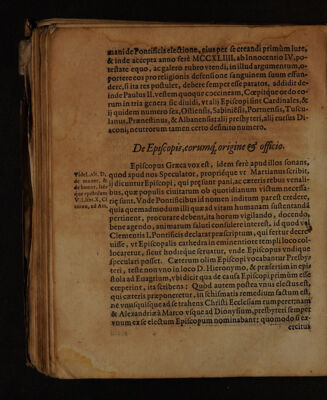 mani de Pontificis electione, eiusque per se creandi primùm iure,
& inde accepta anno ferè MCCXLIIII. ab Innocentio IV, po-
testate equo, ac galero rubro vtendi, in illud argumentum, o-
portere eos pro religionis defensione sanguinem suum effun-
dere, si ita res postulet, debere semper esse paratos, addidit de-
inde Paulus II. vestem quoque coccineam. Cœpitque ordo eo-
rum in tria genera sic diuidi, vt alij Episcopi sint Cardinales, &
ij quidem numero sex, Ostiensis, Sabiniesis, Portuensis, Tuscu-
lanus, Prænestinus, & Albanensis: alij presbyteri, alij rursus Di-
aconi, neutrorum tamen certo definito numero.
De Episcopis, eorumq́, origine & officio.
Episcopus Græca vox est, idem ferè apud illos sonans,
quod apud nos Speculator, proprièque vt Martianus scribit,
dicuntur Episcopi, qui præsunt pani, ac cæteris rebus venali-
bus, quæ populis ciuitatum ob quotidianum victum necessa-
riæ sunt. Vnde Pontificibus id nomen inditum par est credere,
quia quemadmodum illi quæ ad vitam humanam sustentandã
pertinent, procurare debent, ita horum vigilando, docendo,
bene agendo, animarum saluti consulere interest, id quod vel
Clementis I. Pontificis declarat præscriptum, qui fertur decre-
uisse, vt Episcopalis cathedra in eminentiore templi loco col-
locaretur, sicut hodiéque seruatur, vnde Episcopus vndique
speculari posset. Cæterum olim Episcopi vocabantur Presby-
teri, teste non vno in loco D. Hieronymo, & præsertim in epi-
stola ad Euagrium, vbi dicit qua de causa Episcopi primùm esse
cœperint, ita scribens: Quod autem postea vnus electus est,
qui cæteris præponeretur, in schismatis remedium factum est,
ne vnusquisque ad se trahens Christi Ecclesiam rumperet: nam
& Alexandriæ à Marco vsque ad Dionysium, presbyteri semper
vnum ex se electum Episcopum nominabant: quomodo si ex-
ercitus